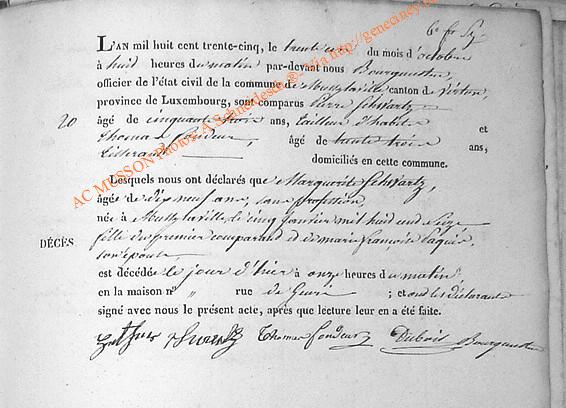 L'AN mil huit cent trente-cinq, le trente un du mois d'octobre
à huit heures du matin par-devant nous Bourguignon
officier de l'état civil de la commune de Mussylaville canton de virton,
province de Luxembourg, sont comparus Pierre Schwartz
20 âgé de cinquante trois ans, tailleur d'habits et
Thomas fondeur, âgé de trente trois ans,
domiciliés en cette commune.
Lesquels nous ont déclarés que Marguerite Schvartz,
âgée de dix neuf ans, sans profession
née à Mussylaville le cinq janvier mil huit cent seize
DÉCÈS
fille du premier comparant et de marie françoise
son épouse,
est décédée le jour d'hier à onze heures du matin
en la maison n° " rue de ; et ont les déclarants
signé avec nous le présent acte, après que lecture leur en a été faite.
Thomas fondeur Dubois
AC MUSSON Photos A Schneidesch ®- Via http://geneciney.b